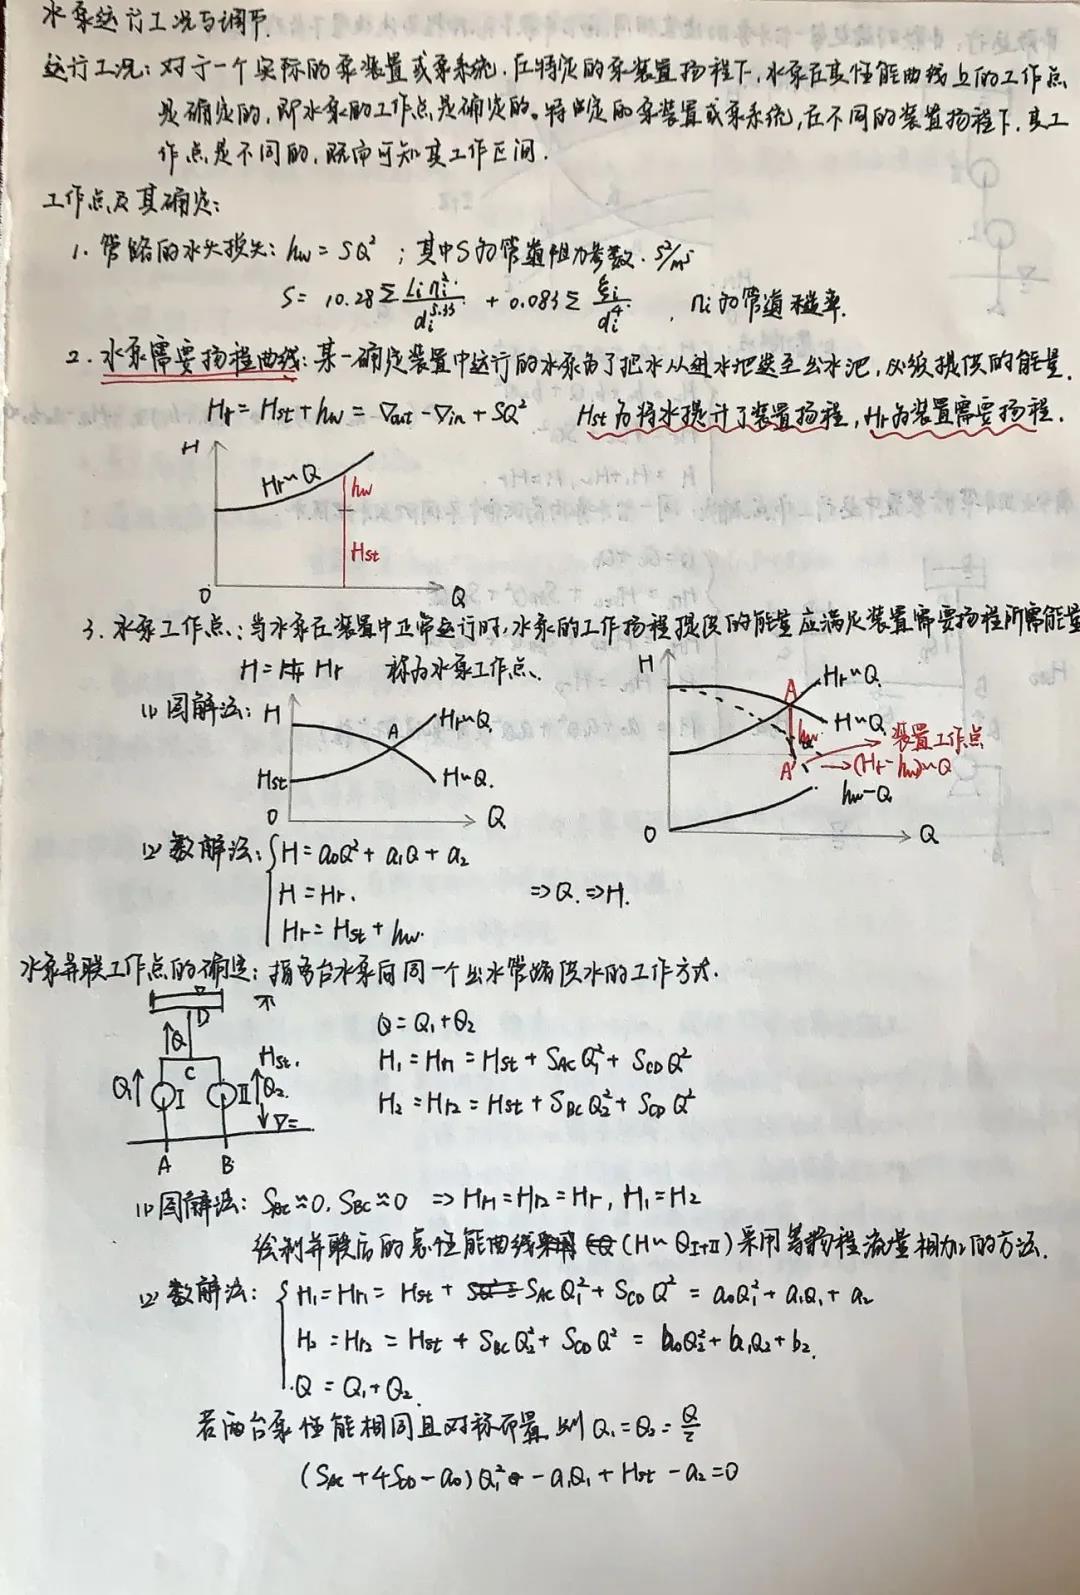 水泵运行工况与调节.
运行工况：对于一个实际的泵装置或泵系统，在特定的泵装置扬程下，水泵在其性能曲线上的工作点
是确定的，即水泵的工作点是确定的。特定的泵装置或泵系统，在不同的装置扬程下，其工
作点是不同的，既而可知其工作区间.
工作点及其确定：
1. 管路的水头损失：hw = SQ² ；其中S为管道阻力参数. s²/m⁵
S = 10.28 Σ Li ni² / di^5.33 + 0.083 Σ ξi / di⁴ , ni为管道糙率.
2. 水泵需要扬程曲线：某一确定装置中运行的水泵为了把水从进水池送至出水池，必须提供的能量.
Hr = Hst + hw = ▽out - ▽in + SQ² Hst为将水提升了装置扬程，Hr为装置需要扬程.
H
Hr~Q
hw
Hst
O
Q
3. 水泵工作点：当水泵在装置中正常运行时，水泵的工作扬程提供的能量应满足装置需要扬程所需能量
H = Hr 称为水泵工作点.
(1) 图解法：
H
A
Hr~Q
Hst
H~Q.
O
Q
H
A
Hr~Q
H~Q
hw
装置工作点
A'
(Hr-hw)~Q
hw~Q
O
Q
(2) 数解法：{ H = a₀Q² + a₁Q + a₂
H = Hr. ⇒Q.⇒H.
Hr = Hst + hw.
水泵并联工作点的确定：指多台水泵向同一个出水管路供水的工作方式.
D
Q
Hst.
C
Q₁
I
II
Q₂
▽
A
B
Q = Q₁ + Q₂
H₁ = Hr1 = Hst + SAC Q₁² + SCD Q²
H₂ = Hr2 = Hst + SBC Q₂² + SCD Q²
(1) 图解法：SAC≈0. SBC≈0 ⇒ Hr1 = Hr2 = Hr , H₁ = H₂
绘制并联后的总性能曲线 (H~QI+II) 采用等扬程流量相加的方法.
(2) 数解法：{ H₁ = Hr1 = Hst + SAC Q₁² + SCD Q² = a₀Q₁² + a₁Q₁ + a₂
H₂ = Hr2 = Hst + SBC Q₂² + SCD Q² = b₀Q₂² + b₁Q₂ + b₂.
Q = Q₁ + Q₂.
若两台泵性能相同且对称布置，则 Q₁ = Q₂ = Q/2
(SAC + 4SCD - a₀) Q₁² - a₁Q₁ + Hst - a₂ = 0